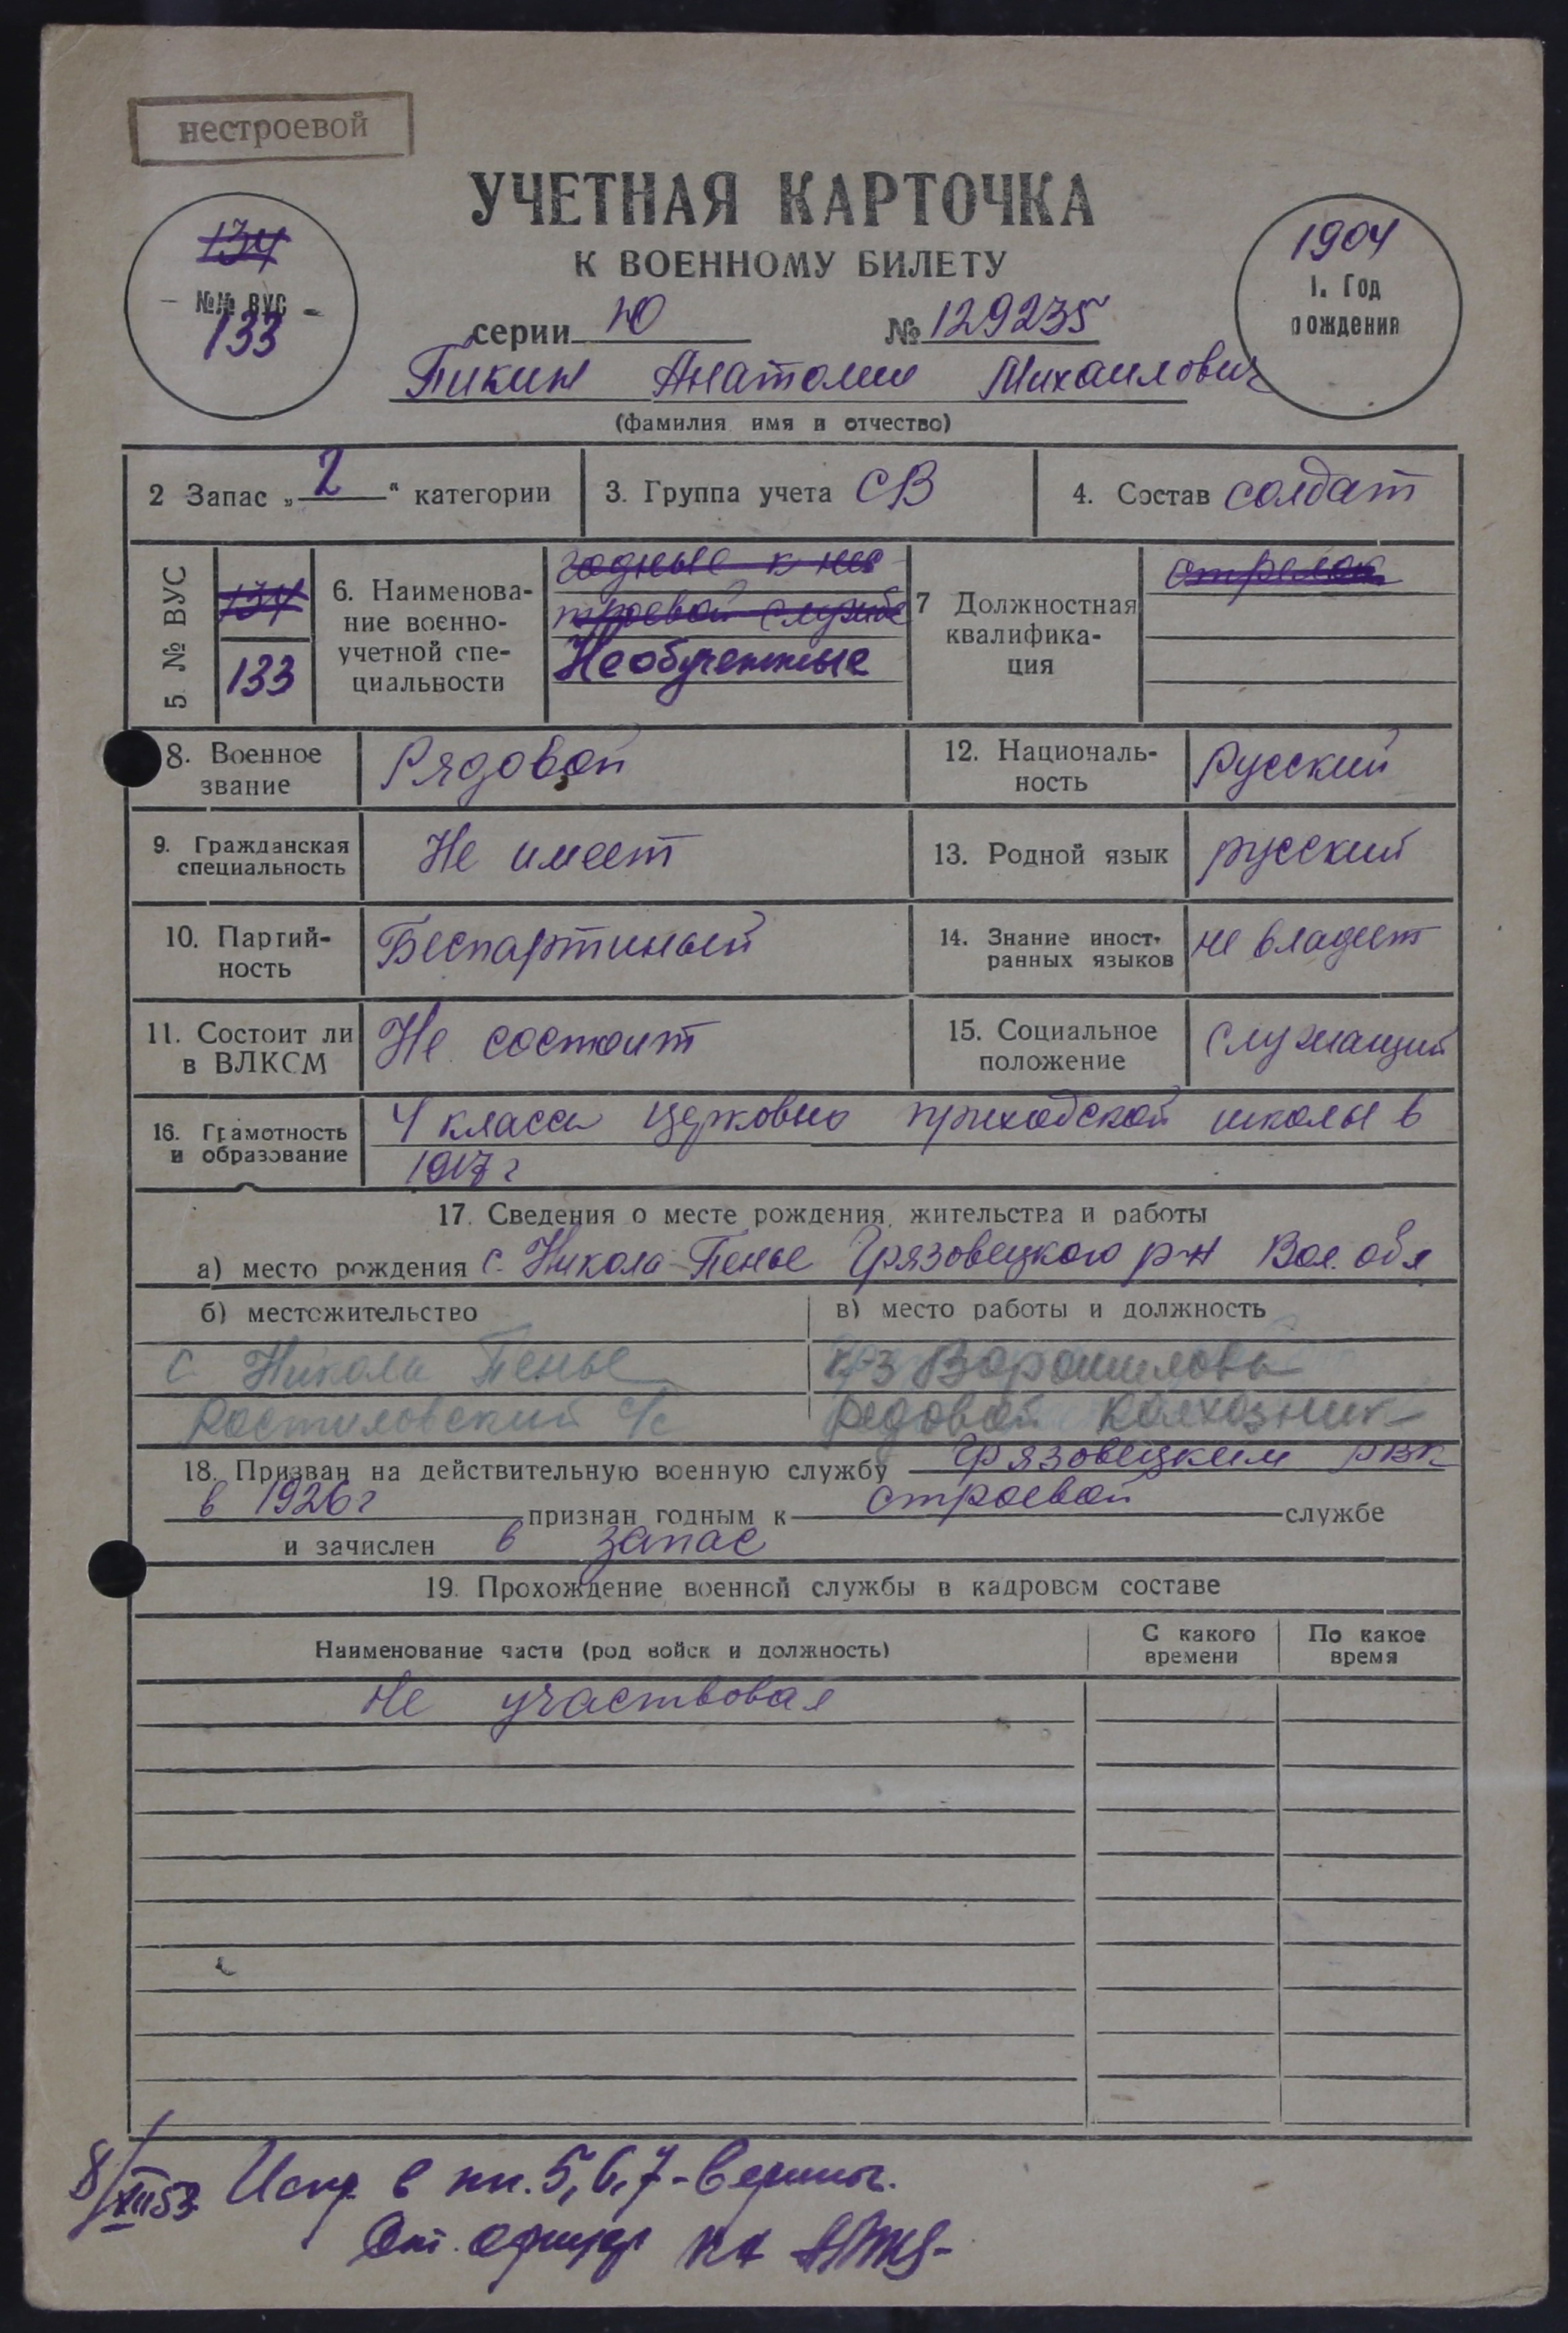 нестроевой
УЧЕТНАЯ КАРТОЧКА
К ВОЕННОМУ БИЛЕТУ
134
№№ ВУС
133
1904
1. Год
рождения
серии Ю № 129235
Пикин Анатолии Михаилович
(фамилия имя и отчество)
2 Запас „2“ категории
3. Группа учета СВ
4. Состав солдат
5 № ВУС
134
133
6. Наименова-
ние военно-
учетной спе-
циальности
годные к нес
троевой службе
Необученные
7 Должностная
квалифика-
ция
стрелок
8. Военное
звание
Рядовой
12. Националь-
ность
Русский
9. Гражданская
специальность
Не имеет
13. Родной язык
русский
10. Партий-
ность
Беспартиный
14. Знание иност-
ранных языков
не владеет
11. Состоит ли
в ВЛКСМ
Не состоит
15. Социальное
положение
Служащий
16. Грамотность
и образование
4 класса церковно приходской школы в
1917 г
17. Сведения о месте рождения, жительства и работы
а) место рождения с. Никола-Пенье Грязовецкого р-н Вол. обл
б) местожительство
в) место работы и должность
с Никола Пенье
Ростиловский с/с
к-з Ворошилова
Редовой колхозник
18. Призван на действительную военную службу Грязовецким РВК
в 1926 г признан годным к строевой службе
и зачислен в запас
19. Прохождение военной службы в кадровом составе
Наименование части (род войск и должность)
С какого
времени
По какое
время
Не участвовал
8/XII 53 Испр. в пп. 5, 6, 7 - верить.